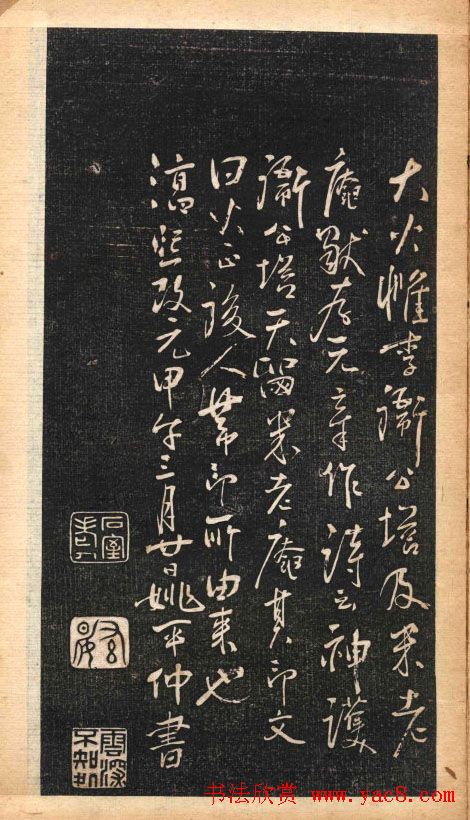 大火惟李衞公塔及米老
庵獨存元章作詩云神護
衞公塔天留米老庵其印文
曰火正後人芾印所由來也
淳熙改元甲午三月廿日姚平仲書
雲深不知処
书法欣赏 www.yac8.com